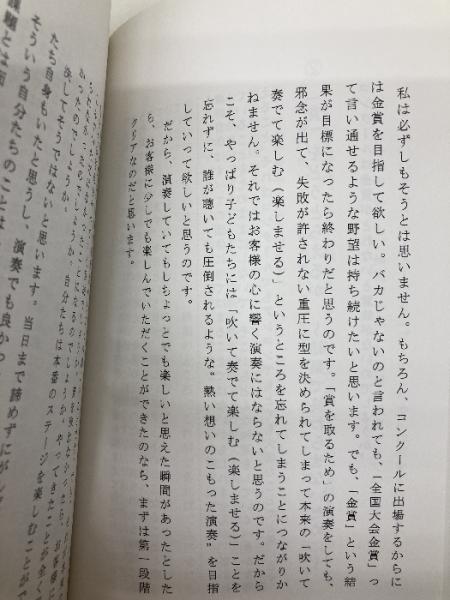 私は必ずしもそうとは思いません。もちろん、コンクールに出場するからに
は金賞を目指して欲しい。バカじゃないのと言われても、「全国大会金賞」っ
て言い通せるような野望は持ち続けたいと思います。でも、「金賞」という結
果が目標になったら終わりだと思うのです。「賞を取るため」の演奏をしても、
邪念が出て、失敗が許されない重圧に型を決められてしまって本来の「吹いて
奏でて楽しむ（楽しませる）」というところを忘れてしまうことにつながりか
ねません。それではお客様の心に響く演奏にはならないと思うのです。だから
こそ、やっぱり子どもたちには「吹いて奏でて楽しむ（楽しませる）」ことを
忘れずに、誰が聴いても圧倒されるような。熱い想いのこもった演奏〟を目指
していって欲しいと思うのです。
だから、演奏していてもしちょっとでも楽しいと思えた瞬間があったとした
ら、お客様に少しでも楽しんでいただくことができたのなら、まずは第一段階
クリアなのだと思います。
自分たちは本番のステージを楽しむことがで
決してそうではないと思います。
たち自身もいたと思うし、演奏でも良かっ
そういう自分たちのことは
課題とは面